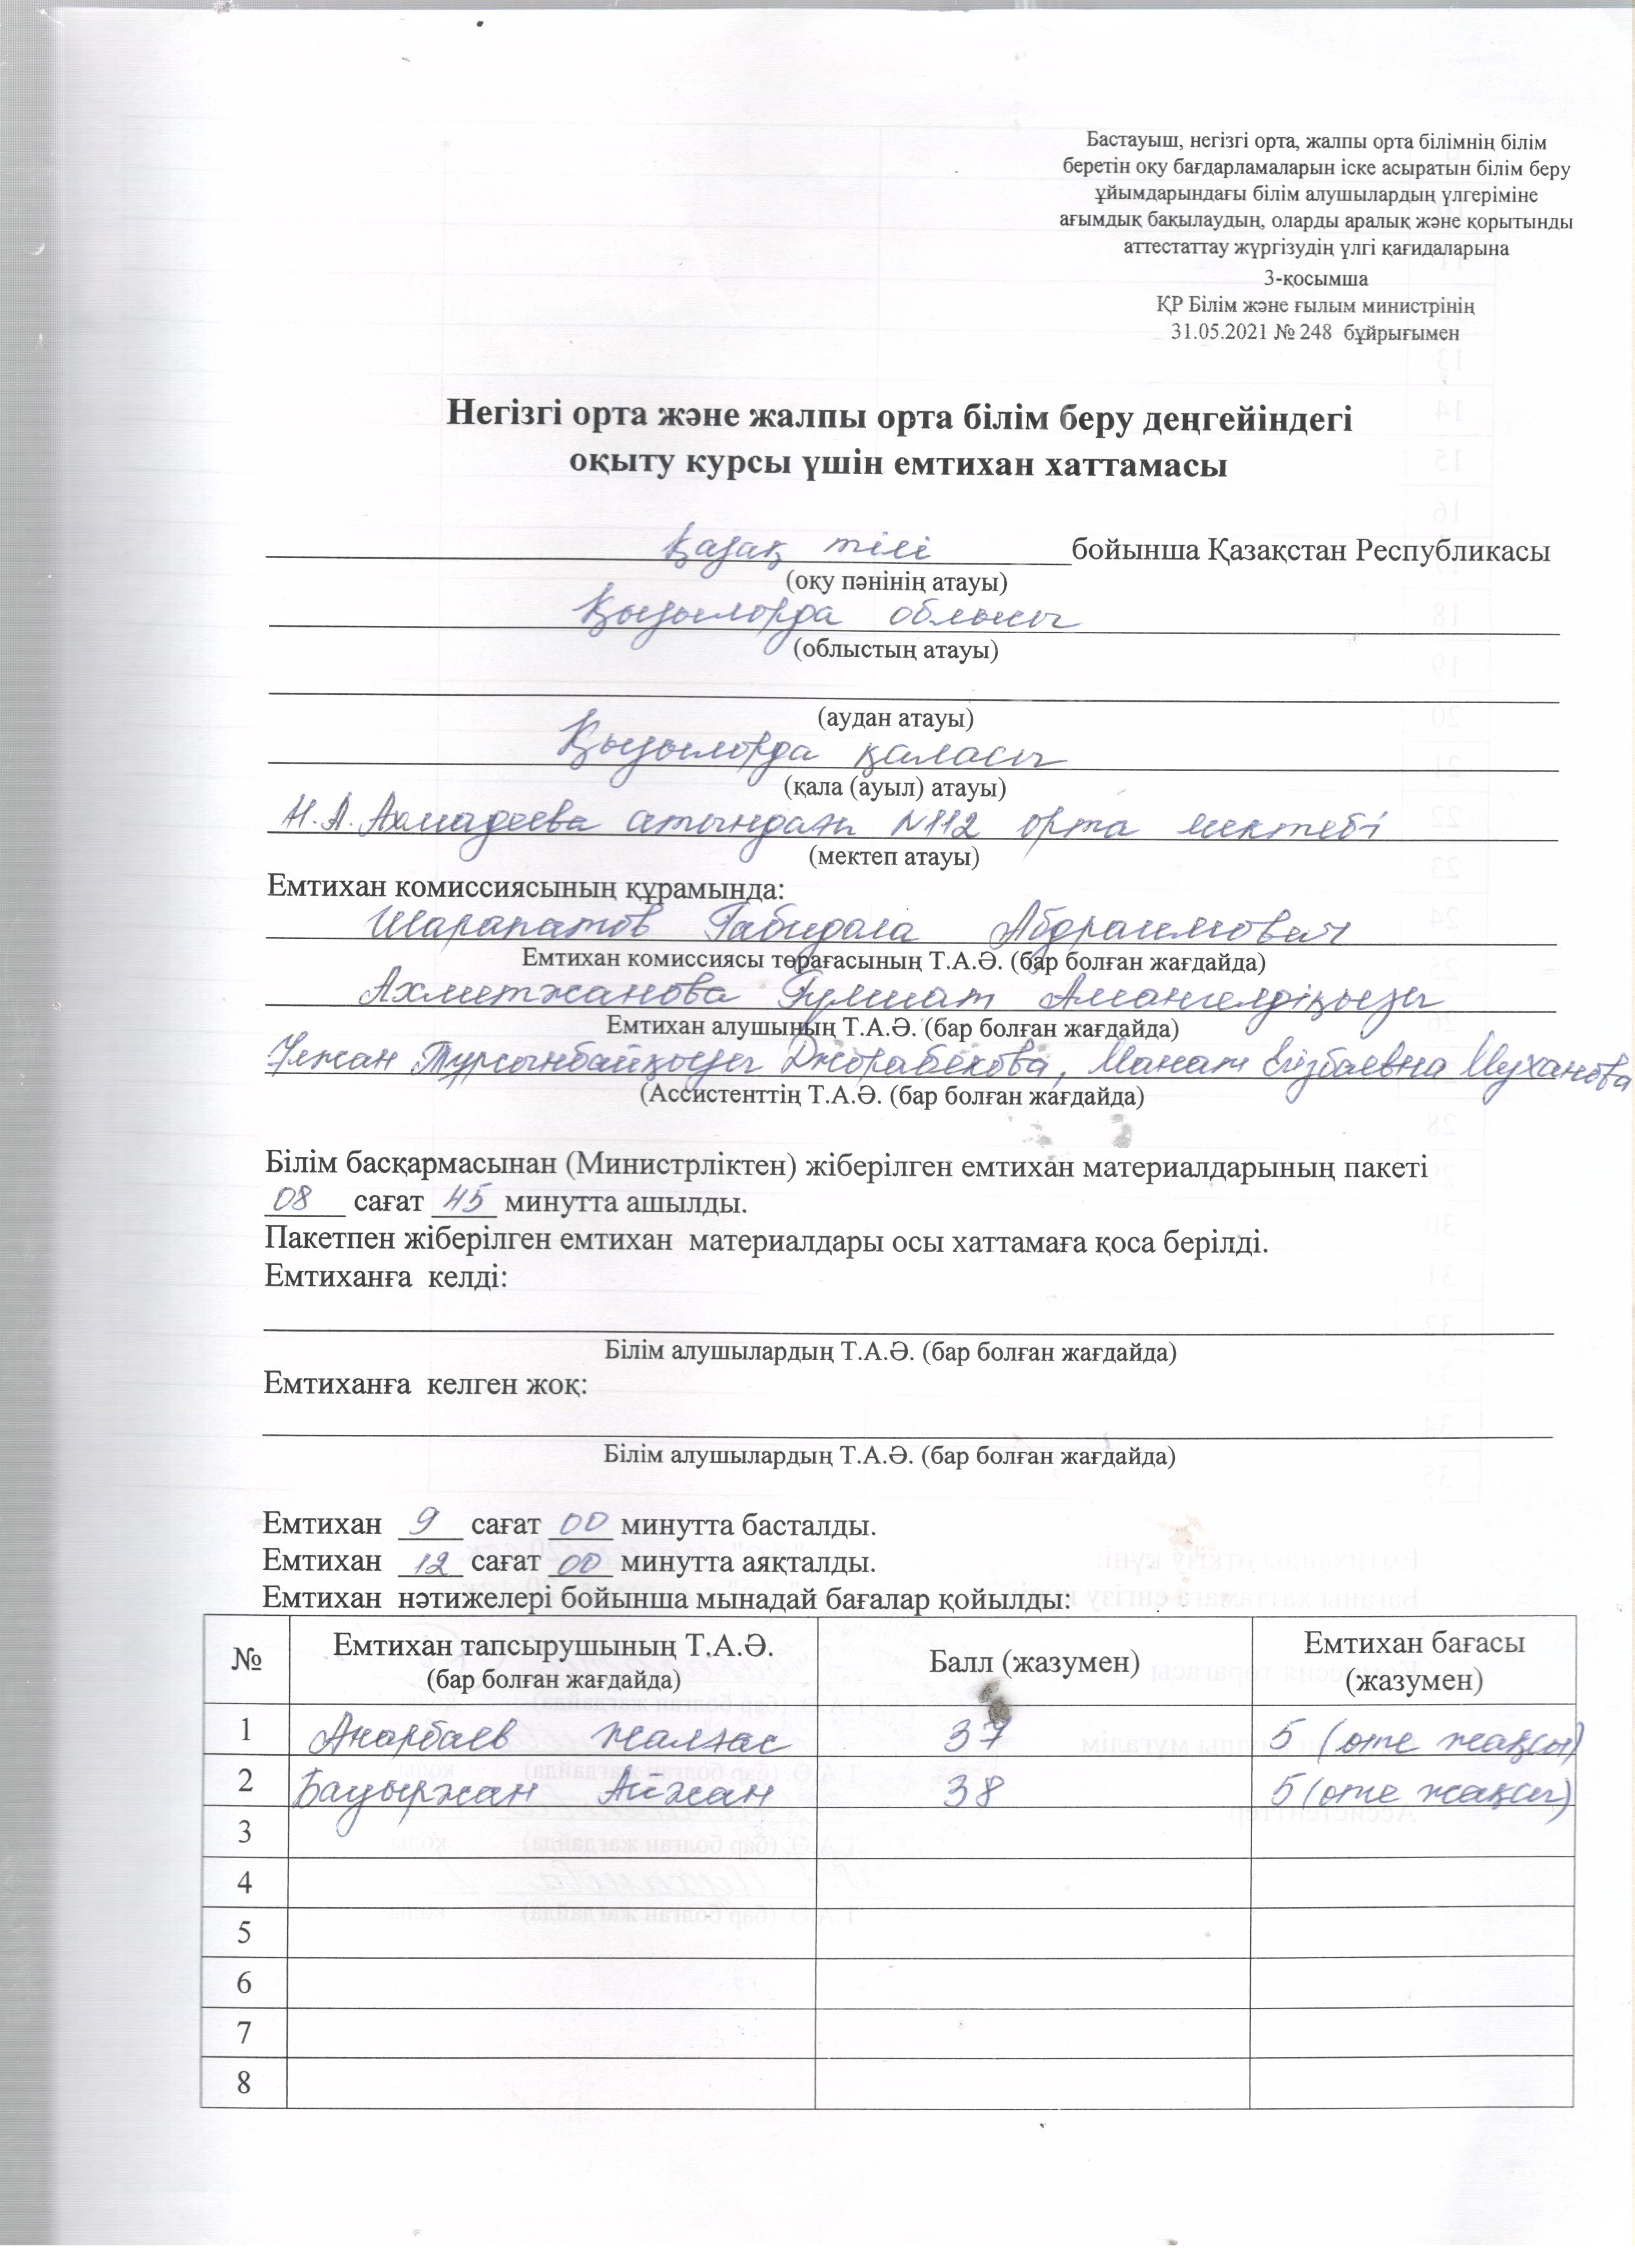 Бастауыш, негізгі орта, жалпы орта білімнің білім
беретін оқу бағдарламаларын іске асыратын білім беру
ұйымдарындағы білім алушылардың үлгеріміне
ағымдық бақылаудың, оларды аралық және қорытынды
аттестаттау жүргізудің үлгі қағидаларына
3-қосымша
ҚР Білім және ғылым министрінің
31.05.2021 № 248 бұйрығымен
Негізгі орта және жалпы орта білім беру деңгейіндегі
оқыту курсы үшін емтихан хаттамасы
Қазақ тілі бойынша Қазақстан Республикасы
(оқу пәнінің атауы)
Қызылорда облысы
(облыстың атауы)
(аудан атауы)
Қызылорда қаласы
(қала (ауыл) атауы)
Н.А. Ахмадеева атындағы №112 орта мектебі
(мектеп атауы)
Емтихан комиссиясының құрамында:
Шарапатов Габидола Абдраимович
Емтихан комиссиясы төрағасының Т.А.Ә. (бар болған жағдайда)
Ахметжанова Гулшат Амангелдіқызы
Емтихан алушының Т.А.Ә. (бар болған жағдайда)
Улжан Тұрсынбайқызы Джорабекова, Манат Егізбаевна Муханова
(Ассистенттің Т.А.Ә. (бар болған жағдайда)
Білім басқармасынан (Министрліктен) жіберілген емтихан материалдарының пакеті
08 сағат 45 минутта ашылды.
Пакетпен жіберілген емтихан материалдары осы хаттамаға қоса берілді.
Емтиханға келді:
Білім алушылардың Т.А.Ә. (бар болған жағдайда)
Емтиханға келген жоқ:
Білім алушылардың Т.А.Ә. (бар болған жағдайда)
Емтихан 9 сағат 00 минутта басталды.
Емтихан 12 сағат 00 минутта аяқталды.
Емтихан нәтижелері бойынша мынадай бағалар қойылды:
№ Емтихан тапсырушының Т.А.Ә. (бар болған жағдайда) Балл (жазумен) Емтихан бағасы (жазумен)
1 Анарбаев Жалғас 37 5 (өте жақсы)
2 Бауыржан Айжан 38 5 (өте жақсы)
3
4
5
6
7
8